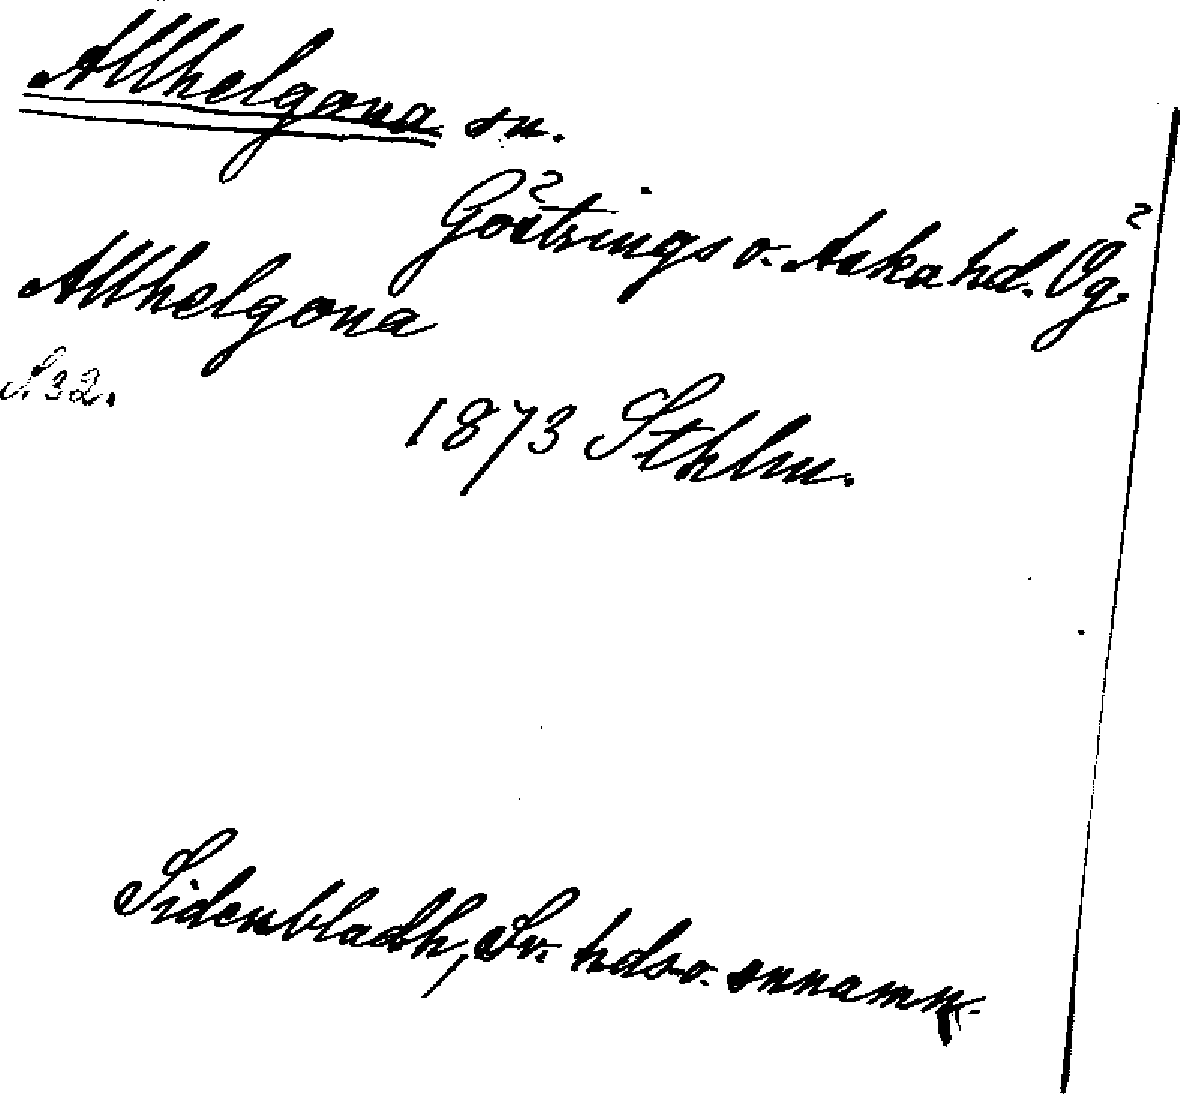 Allhelgona sn.
Göstrings o. Aska hd. Ög.
Allhelgona
S. 32.
1873 Sthlm.
Sidenbladh, Sv. hds- o. snnamn.